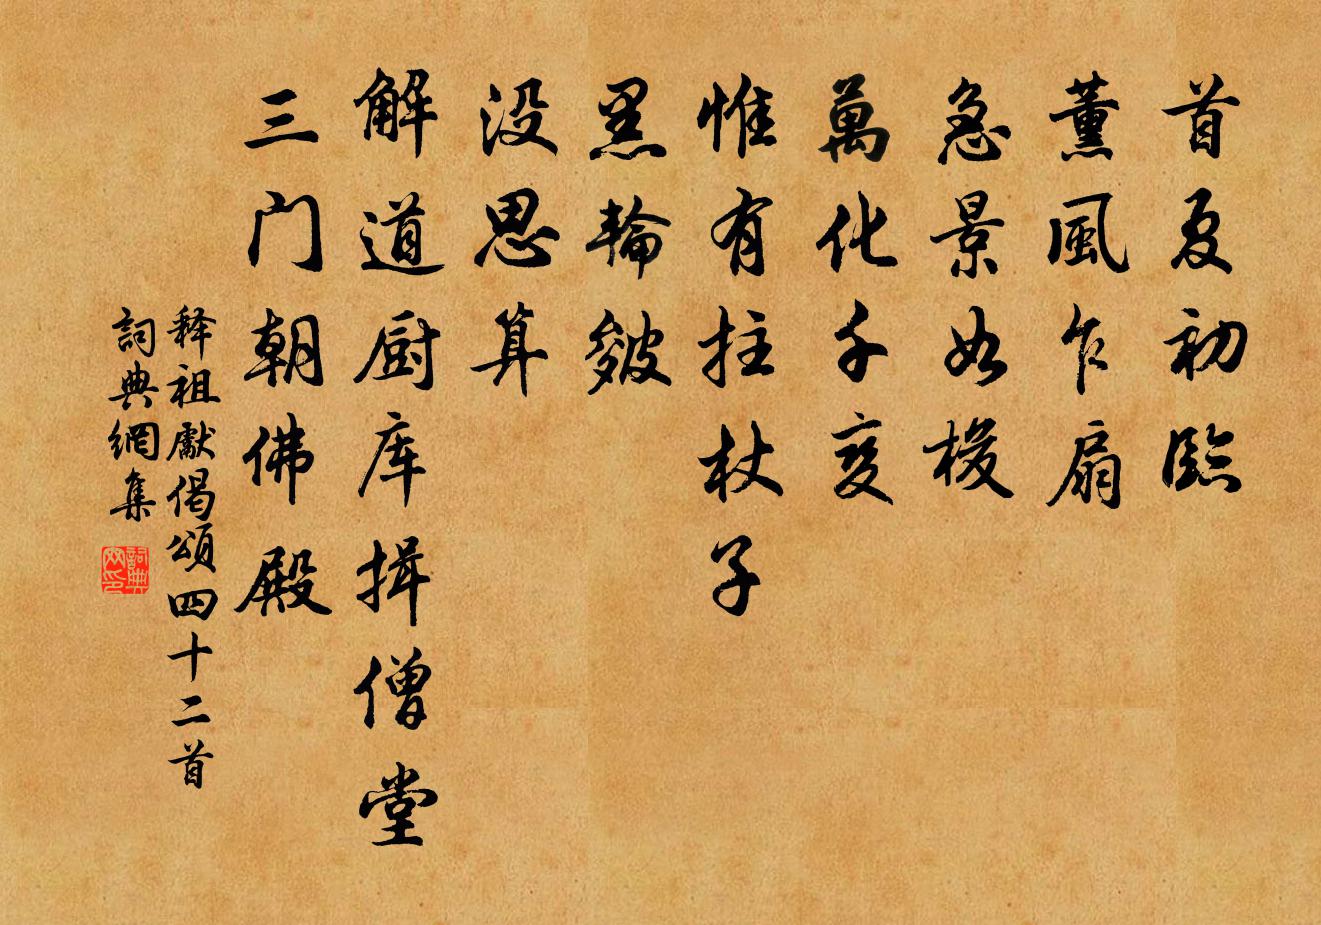 首夏初臨
薰風乍扇
急景如梭
萬化千变
惟有拄杖子
黑輪皴
没思算
解道厨库揖僧堂
三门朝佛殿
释祖獻偈頌四十二首
詞典網集
詞典网印